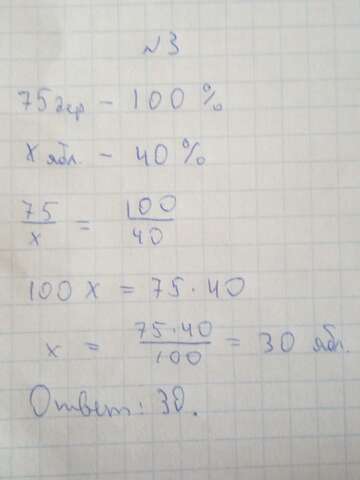 №3
75 дер – 100 %
x ябл. – 40 %
75/x = 100/40
100 x = 75 · 40
x = 75·40/100 = 30 ябл.
Ответ: 30.